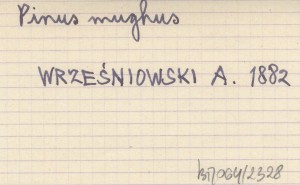 Pinus mughus
WRZEŚNIOWSKI A. 1882
/2328